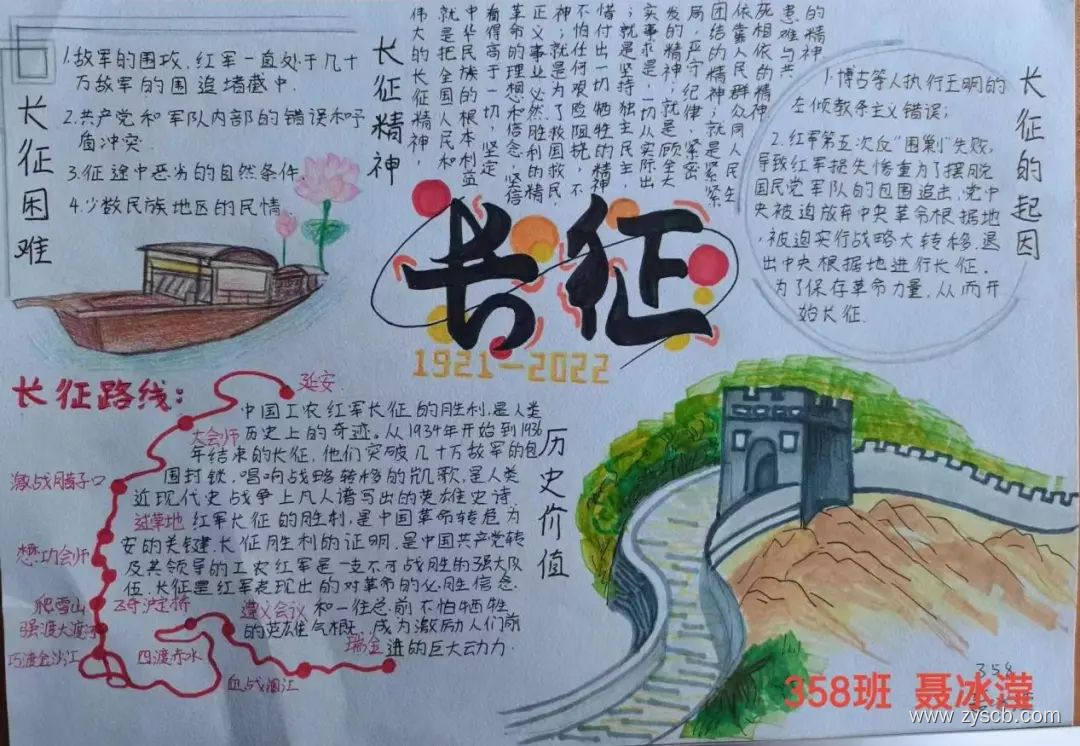 长征困难
1.敌军的围攻,红军一直处于几十
万敌军的围追堵截中.
2.共产党和军队内部的错误和矛
盾冲突.
3.征途中恶劣的自然条件.
4.少数民族地区的民情
长征精神
伟大的长征精神,
就是把全国人民和
中华民族的根本利益
看得高于一切,坚定
革命的理想和信念,坚信
正义事业必然胜利的精
神;就是为了救国救民,
不怕任何艰险阻挠,不
惜付出一切牺牲的精神
;就是坚持独立自主,
实事求是,一切从实际出
发的精神;就是顾全大
局,严守纪律,紧密
团结的精神;就是紧紧
依靠人民群众,同人民生
死相依的精神
患难与共
的精神
长征的起因
1.博古等人执行王明的
左倾教条主义错误;
2.红军第五次反“围剿”失败,
导致红军损失惨重为了摆脱
国民党军队的包围追击,党中
央被迫放弃中央革命根据地
,被迫实行战略大转移.退
出中央根据地进行长征.
为了保存革命力量,从而开
始长征.
长征
1921-2022
长征路线:
延安
大会师
激战腊子口
过草地
懋功会师
爬雪山
飞夺泸定桥
强渡大渡河
巧渡金沙江
四渡赤水
遵义会议
血战湘江
瑞金
历史价值
中国工农红军长征的胜利,是人类
历史上的奇迹。从1934年开始到1936
年结束的长征,他们突破几十万敌军的包
围封锁,唱响战略转移的凯歌,是人类
近现代史战争上凡人谱写出的英雄史诗
红军长征的胜利,是中国革命转危为
安的关键.长征胜利的证明,是中国共产党转
及其领导的工农红军是一支不可战胜的强大队
伍.长征是红军表现出的对革命的必胜信念.
和一往总前不怕牺牲
的英雄气概,成为激励人们前
进的巨大动力.
358
358班 聂冰滢
www.zyscb.com